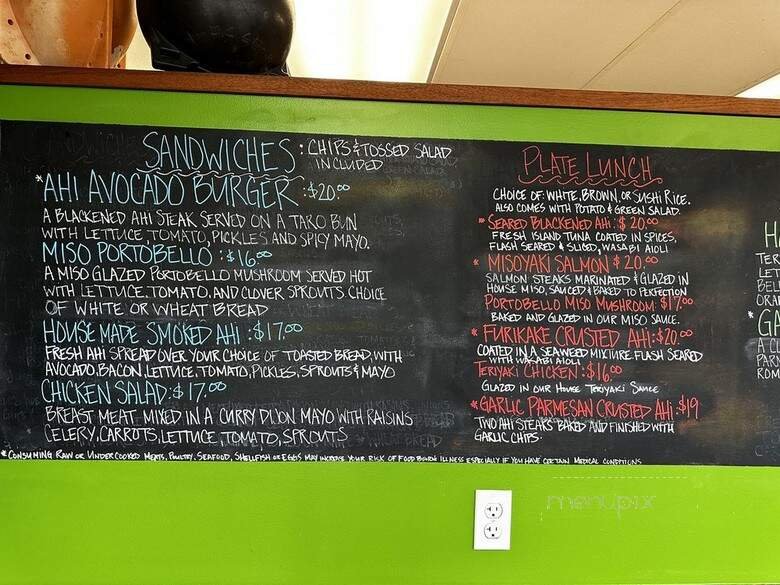 SANDWICHES : CHIPS & TOSSED SALAD
INCLUDED
*AHI AVOCADO BURGER : $20.00
A BLACKENED AHI STEAK SERVED ON A TARO BUN
WITH LETTUCE, TOMATO, PICKLES AND SPICY MAYO.
MISO PORTOBELLO : $16.00
A MISO GLAZED PORTOBELLO MUSHROOM SERVED HOT
WITH LETTUCE, TOMATO, AND CLOVER SPROUTS. CHOICE
OF WHITE OR WHEAT BREAD
HOUSE MADE SMOKED AHI : $17.00
FRESH AHI SPREAD OVER YOUR CHOICE OF TOASTED BREAD WITH
AVOCADO, BACON, LETTUCE, TOMATO, PICKLES, SPROUTS & MAYO
CHICKEN SALAD : $17.00
BREAST MEAT MIXED IN A CURRY DIJON MAYO WITH RAISINS
CELERY, CARROTS, LETTUCE, TOMATO, SPROUTS
*CONSUMING RAW OR UNDERCOOKED MEATS, POULTRY, SEAFOOD, SHELLFISH OR EGGS MAY INCREASE YOUR RISK OF FOOD BORNE ILLNESS ESPECIALLY IF YOU HAVE CERTAIN MEDICAL CONDITIONS
PLATE LUNCH
CHOICE OF: WHITE, BROWN, OR SUSHI RICE.
ALSO COMES WITH POTATO & GREEN SALAD.
* SEARED BLACKENED AHI : $20.00
FRESH ISLAND TUNA COATED IN SPICES,
FLASH SEARED & SLICED, WASABI AIOLI
* MISOYAKI SALMON $20.00
SALMON STEAKS MARINATED & GLAZED IN
HOUSE MISO, SAUCED & BAKED TO PERFECTION
PORTOBELLO MISO MUSHROOM: $17.00
BAKED AND GLAZED IN OUR MISO SAUCE.
* FURIKAKE CRUSTED AHI: $20.00
COATED IN A SEAWEED MIXTURE FLASH SEARED
WITH WASABI AIOLI
TERIYAKI CHICKEN : $16.00
GLAZED IN OUR HOUSE TERIYAKI SAUCE
* GARLIC PARMESAN CRUSTED AHI: $19
TWO AHI STEAKS BAKED AND FINISHED WITH
GARLIC CHIPS.
H
TER
LET
BEL
ORA
* GA
A CL
PAR
ROM
menupix